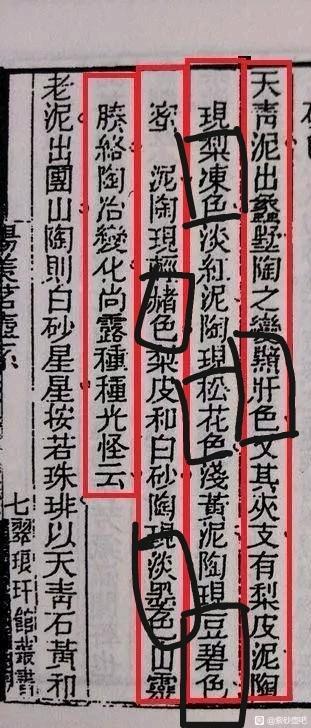 天青泥出蠡墅陶之變顯壯色又其夾支有梨皮泥陶
現梨凍色淡紅泥陶現松花色淺黃泥陶現豆碧色
蜜 泥陶現輕赭色梨皮和白砂陶現淡墨色山靈
腠絡陶冶變化尚露種種光怪云
老泥出團山陶則白砂星星按若珠琲以天青石黃和
陽羨茗壺系
七
翠琅玕館叢書